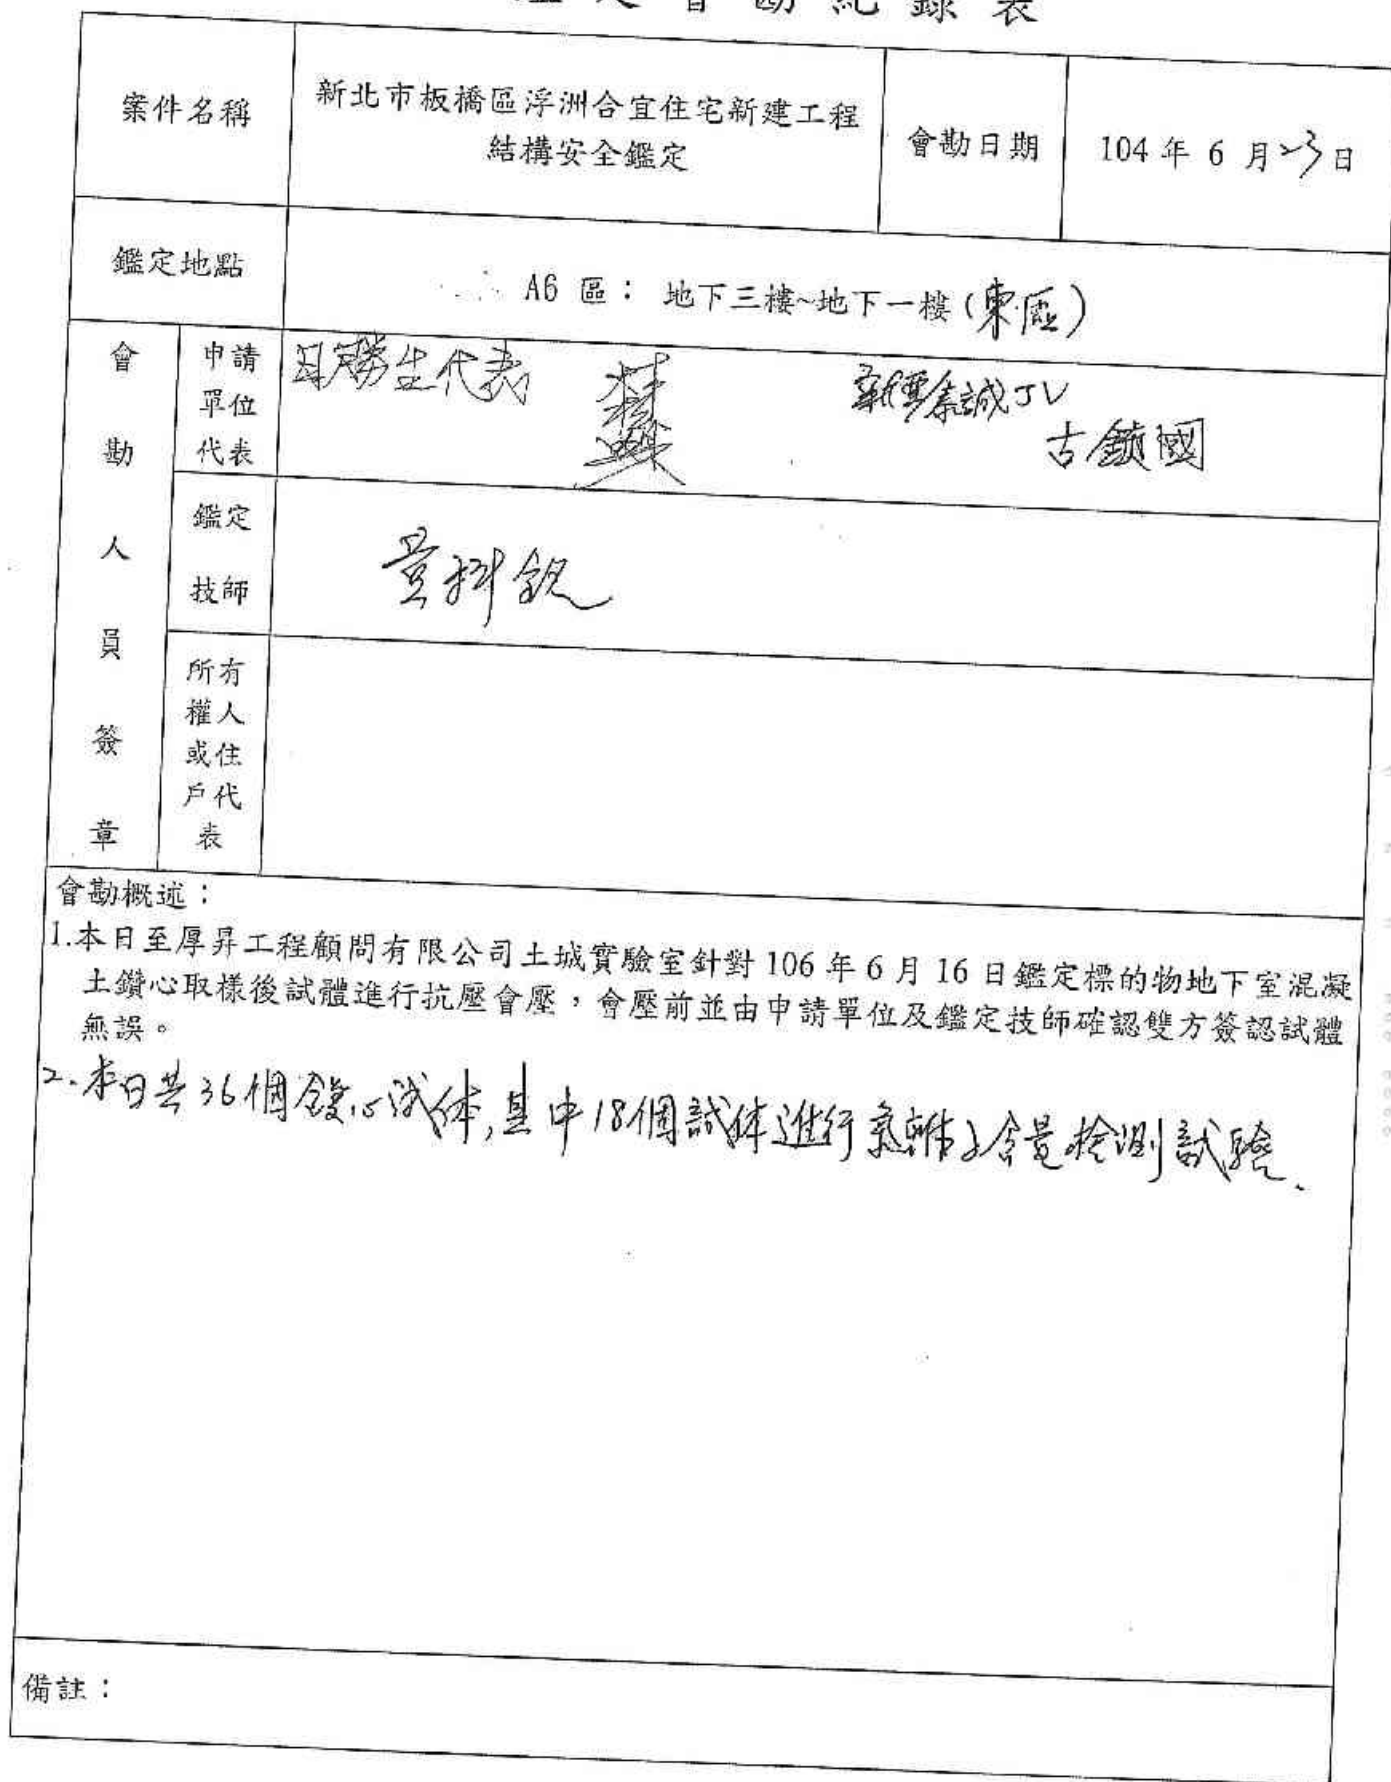 鑑定會勘紀錄表
案件名稱
新北市板橋區浮洲合宜住宅新建工程
結構安全鑑定
會勘日期
104 年 6 月 23 日
鑑定地點
A6 區： 地下三樓~地下一樓 (東區)
會勘人員簽章
申請
單位
代表
日勝生代表
JV
古鎮國
鑑定
技師
所有
權人
或住
戶代
表
會勘概述：
1.本日至厚昇工程顧問有限公司土城實驗室針對 106 年 6 月 16 日鑑定標的物地下室混凝
土鑽心取樣後試體進行抗壓會壓，會壓前並由申請單位及鑑定技師確認雙方簽認試體
無誤。
2.本日共36個鑽心試体,其中18個試体進行氯離子含量檢測試驗.
備註：